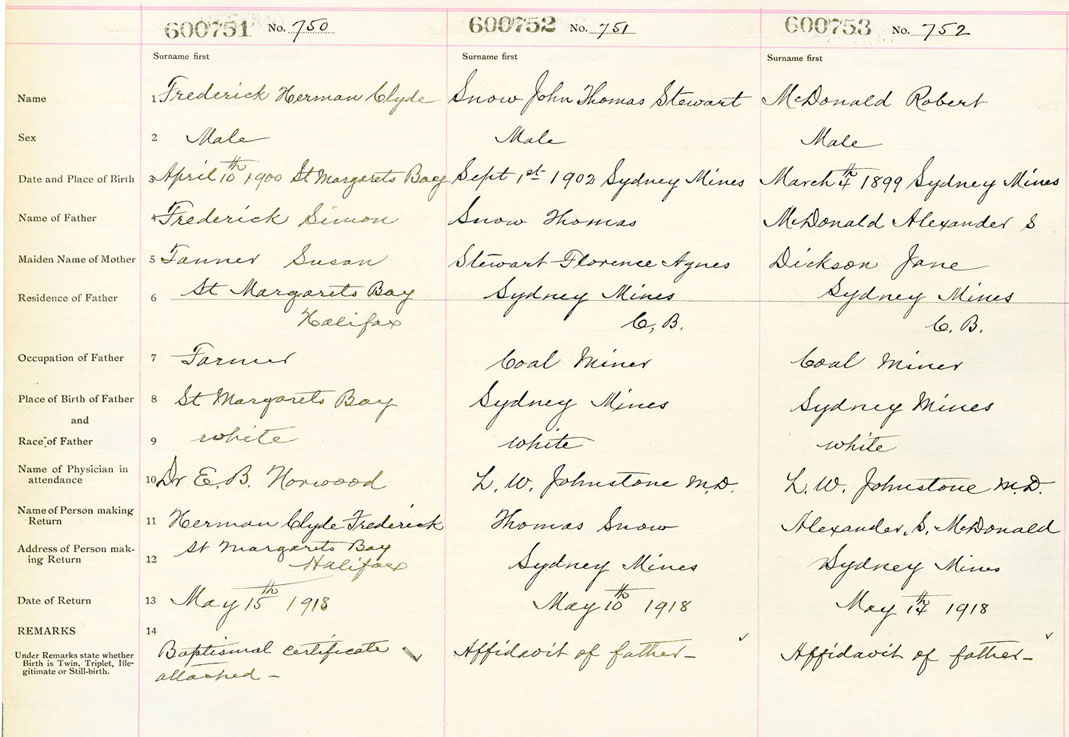 600751 No. 750 600752 No. 751 600753 No. 752
Surname first Surname first Surname first
Name 1 Frederick Herman Clyde Snow John Thomas Stewart McDonald Robert
Sex 2 Male Male Male
Date and Place of Birth 3 April 10th 1900 St Margarets Bay Sept 1st 1902 Sydney Mines March 4th 1899 Sydney Mines
Name of Father 4 Frederick Simon Snow Thomas McDonald Alexander S
Maiden Name of Mother 5 Fanner Susan Stewart Florence Agnes Dickson Jane
Residence of Father 6 St Margarets Bay Sydney Mines Sydney Mines
Halifax C, B. C. B.
Occupation of Father 7 Farmer Coal Miner Coal Miner
Place of Birth of Father 8 St Margarets Bay Sydney Mines Sydney Mines
and
Race of Father 9 white white white
Name of Physician in
attendance 10 Dr E. B. Norwood L. W. Johnstone M.D. L. W. Johnstone M.D.
Name of Person making
Return 11 Herman Clyde Frederick Thomas Snow Alexander, S, McDonald
Address of Person mak- St Margarets Bay
ing Return 12 Halifax Sydney Mines Sydney Mines
Date of Return 13 May 15th 1918 May 10th 1918 May 14th 1918
REMARKS 14
Under Remarks state whether Baptismal certificate Affidavit of father – Affidavit of father –
Birth is Twin, Triplet, Ille-
gitimate or Still-birth. attached –